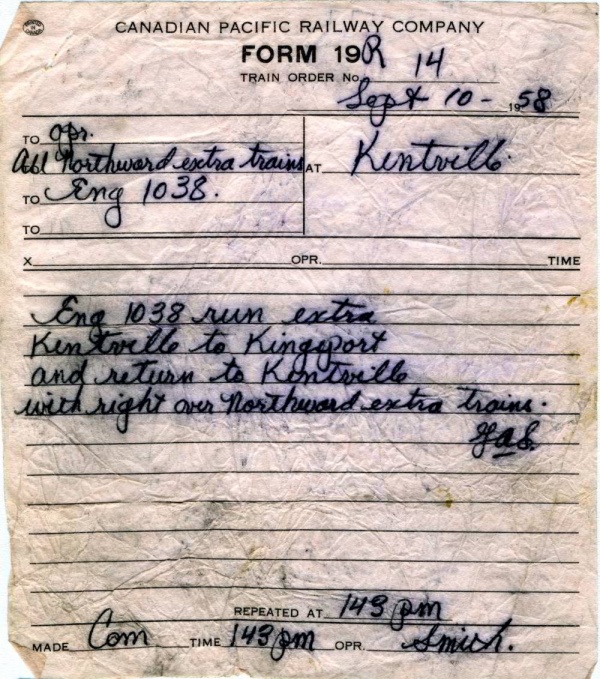 CANADIAN PACIFIC RAILWAY COMPANY
FORM 19R
TRAIN ORDER No. 14
Sept 10 - 1958
TO Opr.
All Northward extra trains AT Kentville
TO Eng 1038.
TO
X OPR. TIME
Eng 1038 run extra
Kentville to Kingsport
and return to Kentville
with right over Northward extra trains.
REPEATED AT 143 pm
MADE Com TIME 143 pm OPR. Smith.